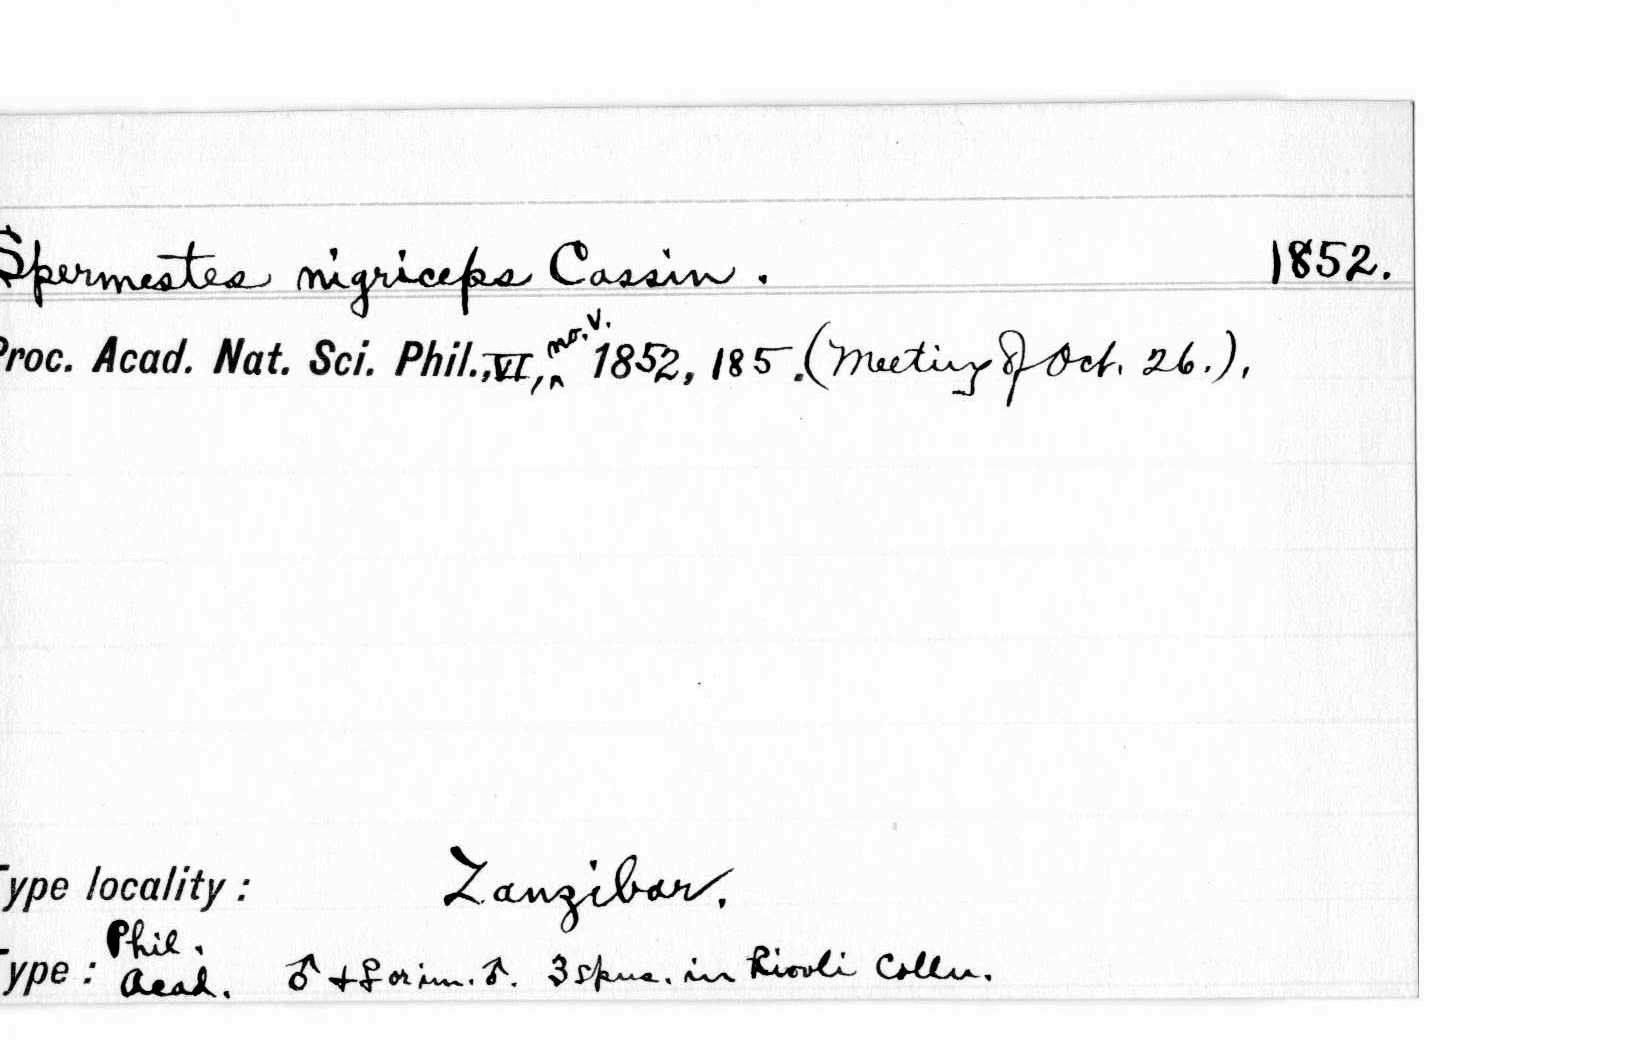 Spermestes nigriceps Cassin. 1852.
Proc. Acad. Nat. Sci. Phil., VI, no. V. 1852, 185. (Meeting of Oct. 26.),
Type locality: Zanzibar.
Type: Phil. Acad. ♂ + ♀ or im. ♂. 3 spns. in Rivoli Colln.